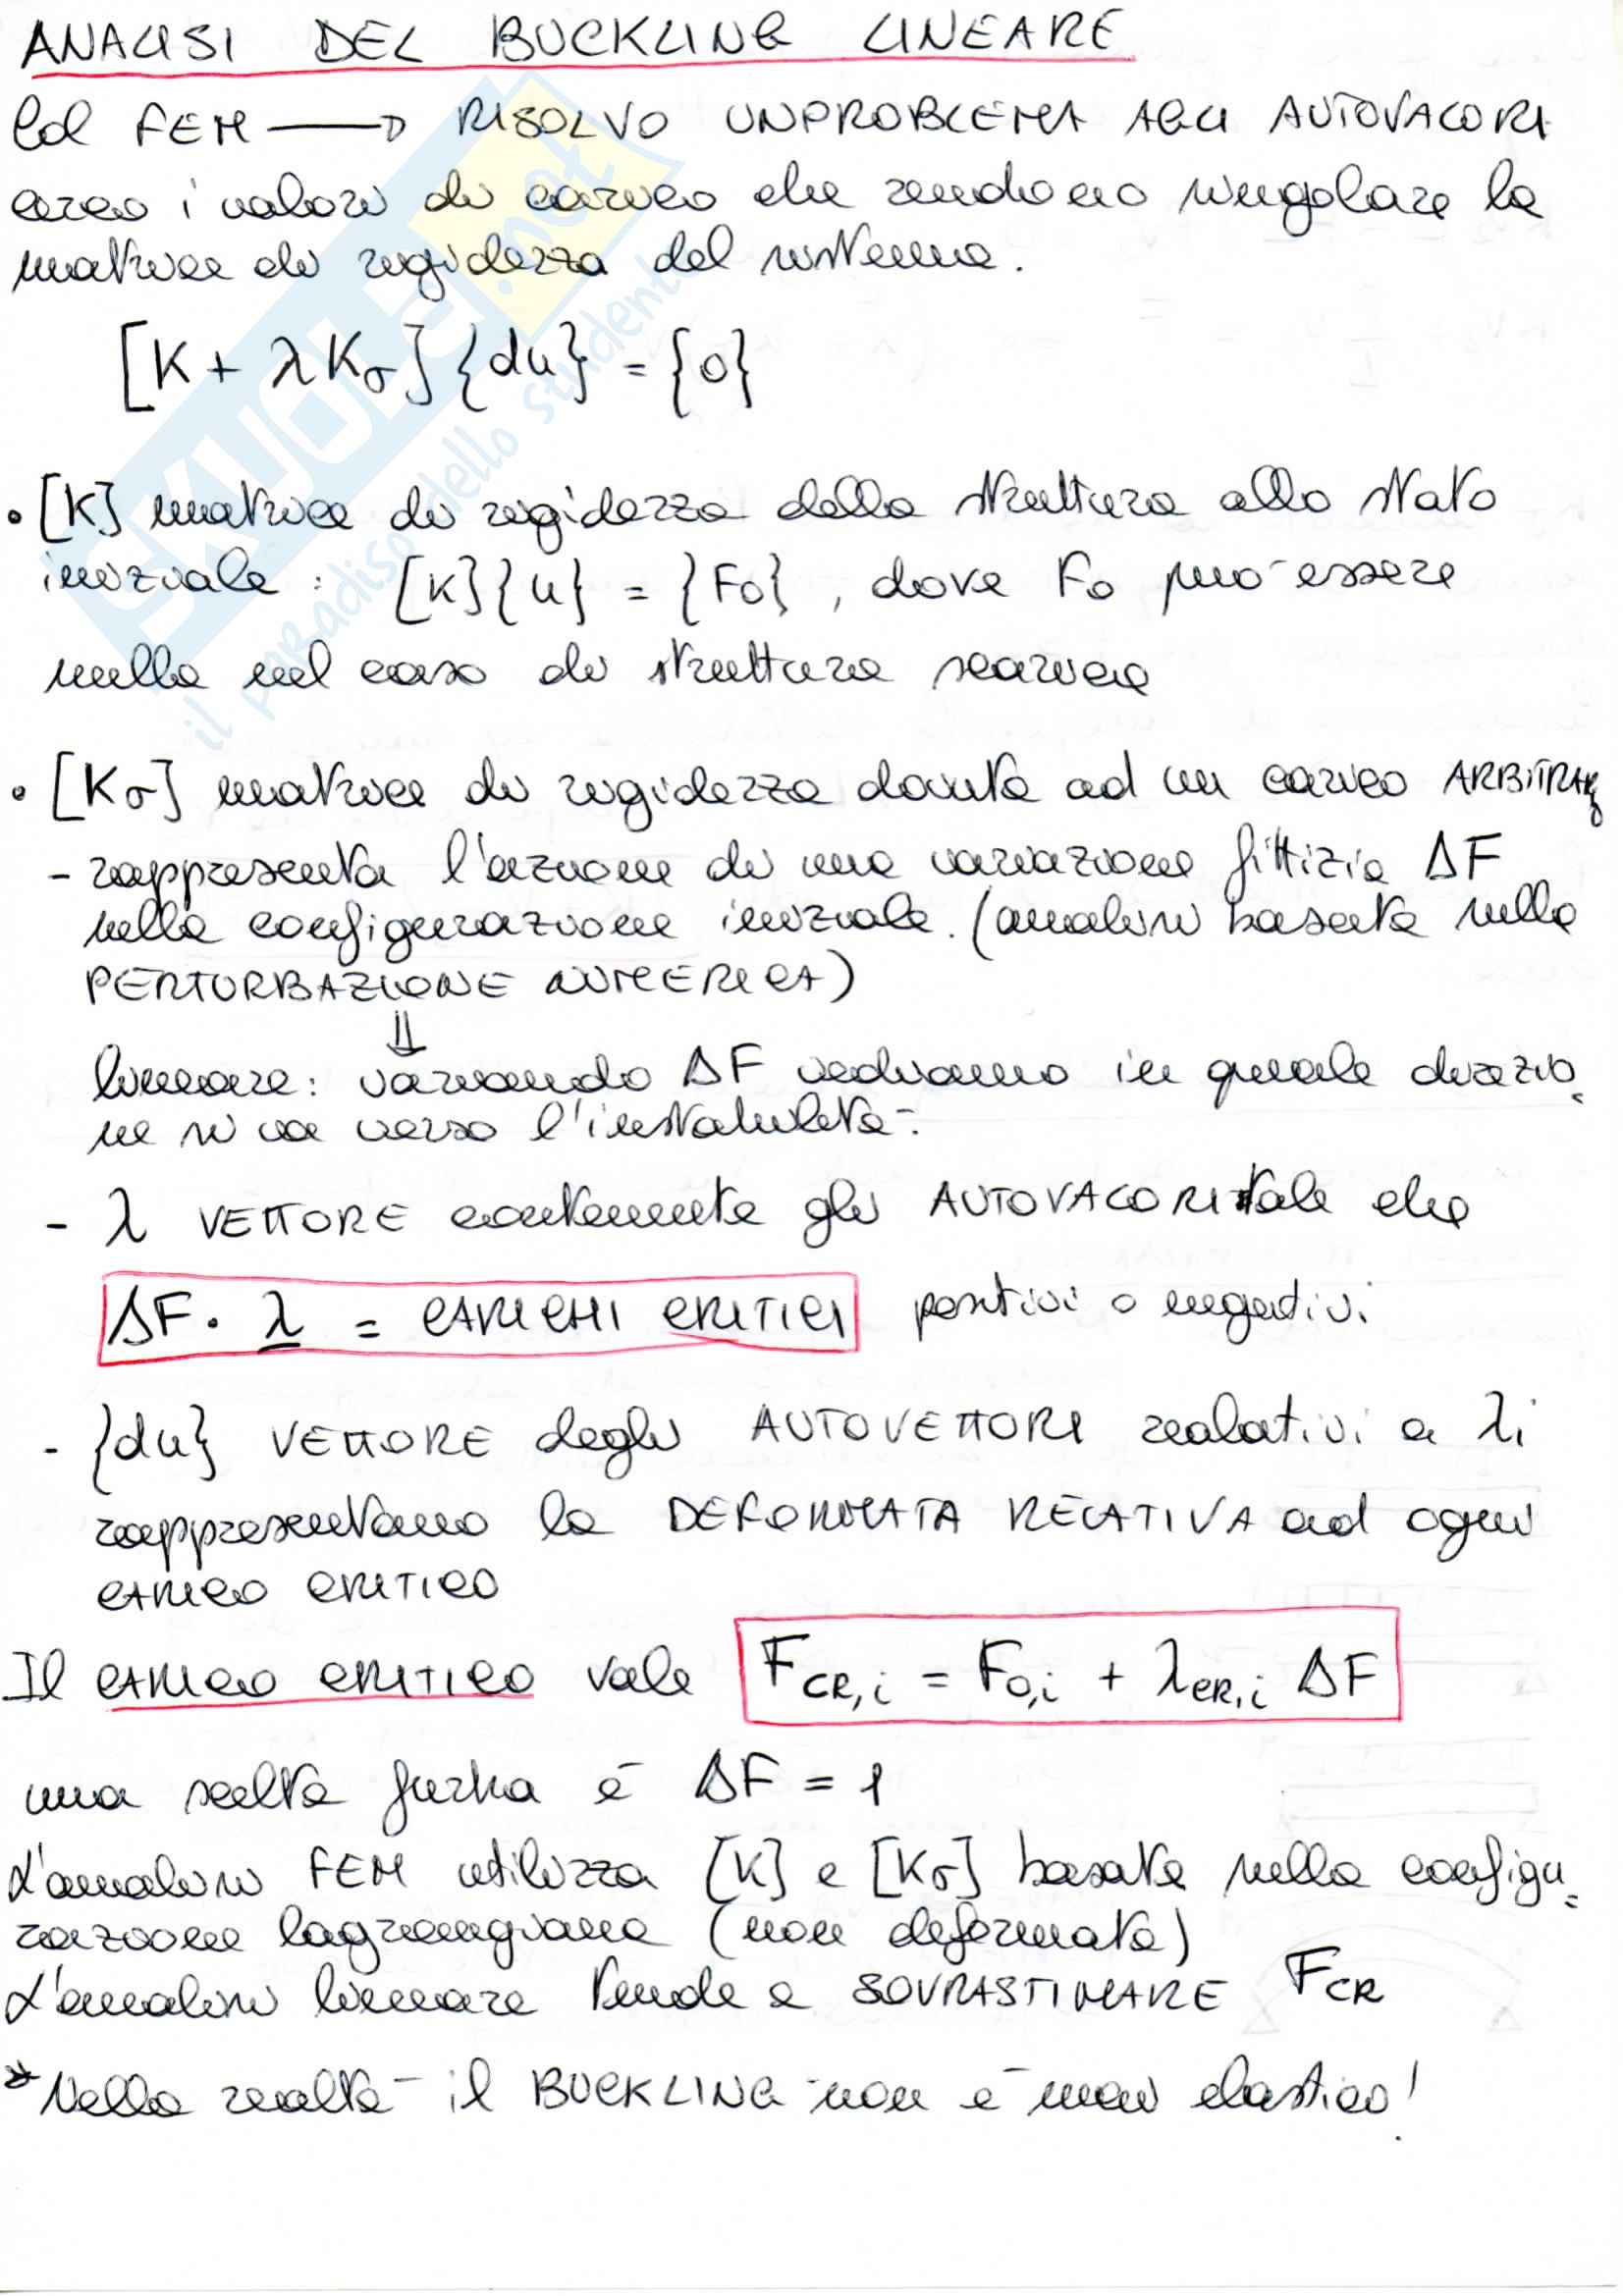 ANALISI DEL BUCKLING LINEARE
Col FEM → RISOLVO UN PROBLEMA AGLI AUTOVALORI
cerco i valori di carico che rendono singolare la
matrice di rigidezza del sistema.
[K + λKσ]{du} = {0}
• [K] matrice di rigidezza della struttura allo stato
iniziale : [K]{u} = {F0} , dove F0 può essere
nulla nel caso di struttura scarica
• [Kσ] matrice di rigidezza dovuta ad un carico ARBITRARIO
- rappresenta l'azione di una variazione fittizia ΔF
nella configurazione iniziale. (analisi basata sulla
PERTURBAZIONE NUMERICA)
⇓
lineare: variando ΔF vediamo in quale direzio
ne si va verso l'instabilità.
- λ VETTORE contenente gli AUTOVALORI tale che
ΔF · λ = CARICHI CRITICI positivi o negativi
- {du} VETTORE degli AUTOVETTORI relativi a λi
rappresentano la DEFORMATA RELATIVA ad ogni
CARICO CRITICO
Il CARICO CRITICO vale F CR,i = F0,i + λCR,i ΔF
una scelta furba è ΔF = 1
L'analisi FEM utilizza [K] e [Kσ] basate sulla configu
razione lagrangiana (non deformata)
L'analisi lineare tende a SOVRASTIMARE FCR
* Nella realtà il BUCKLING non è mai elastico!
SKUOLA.net
il paradiso dello studente